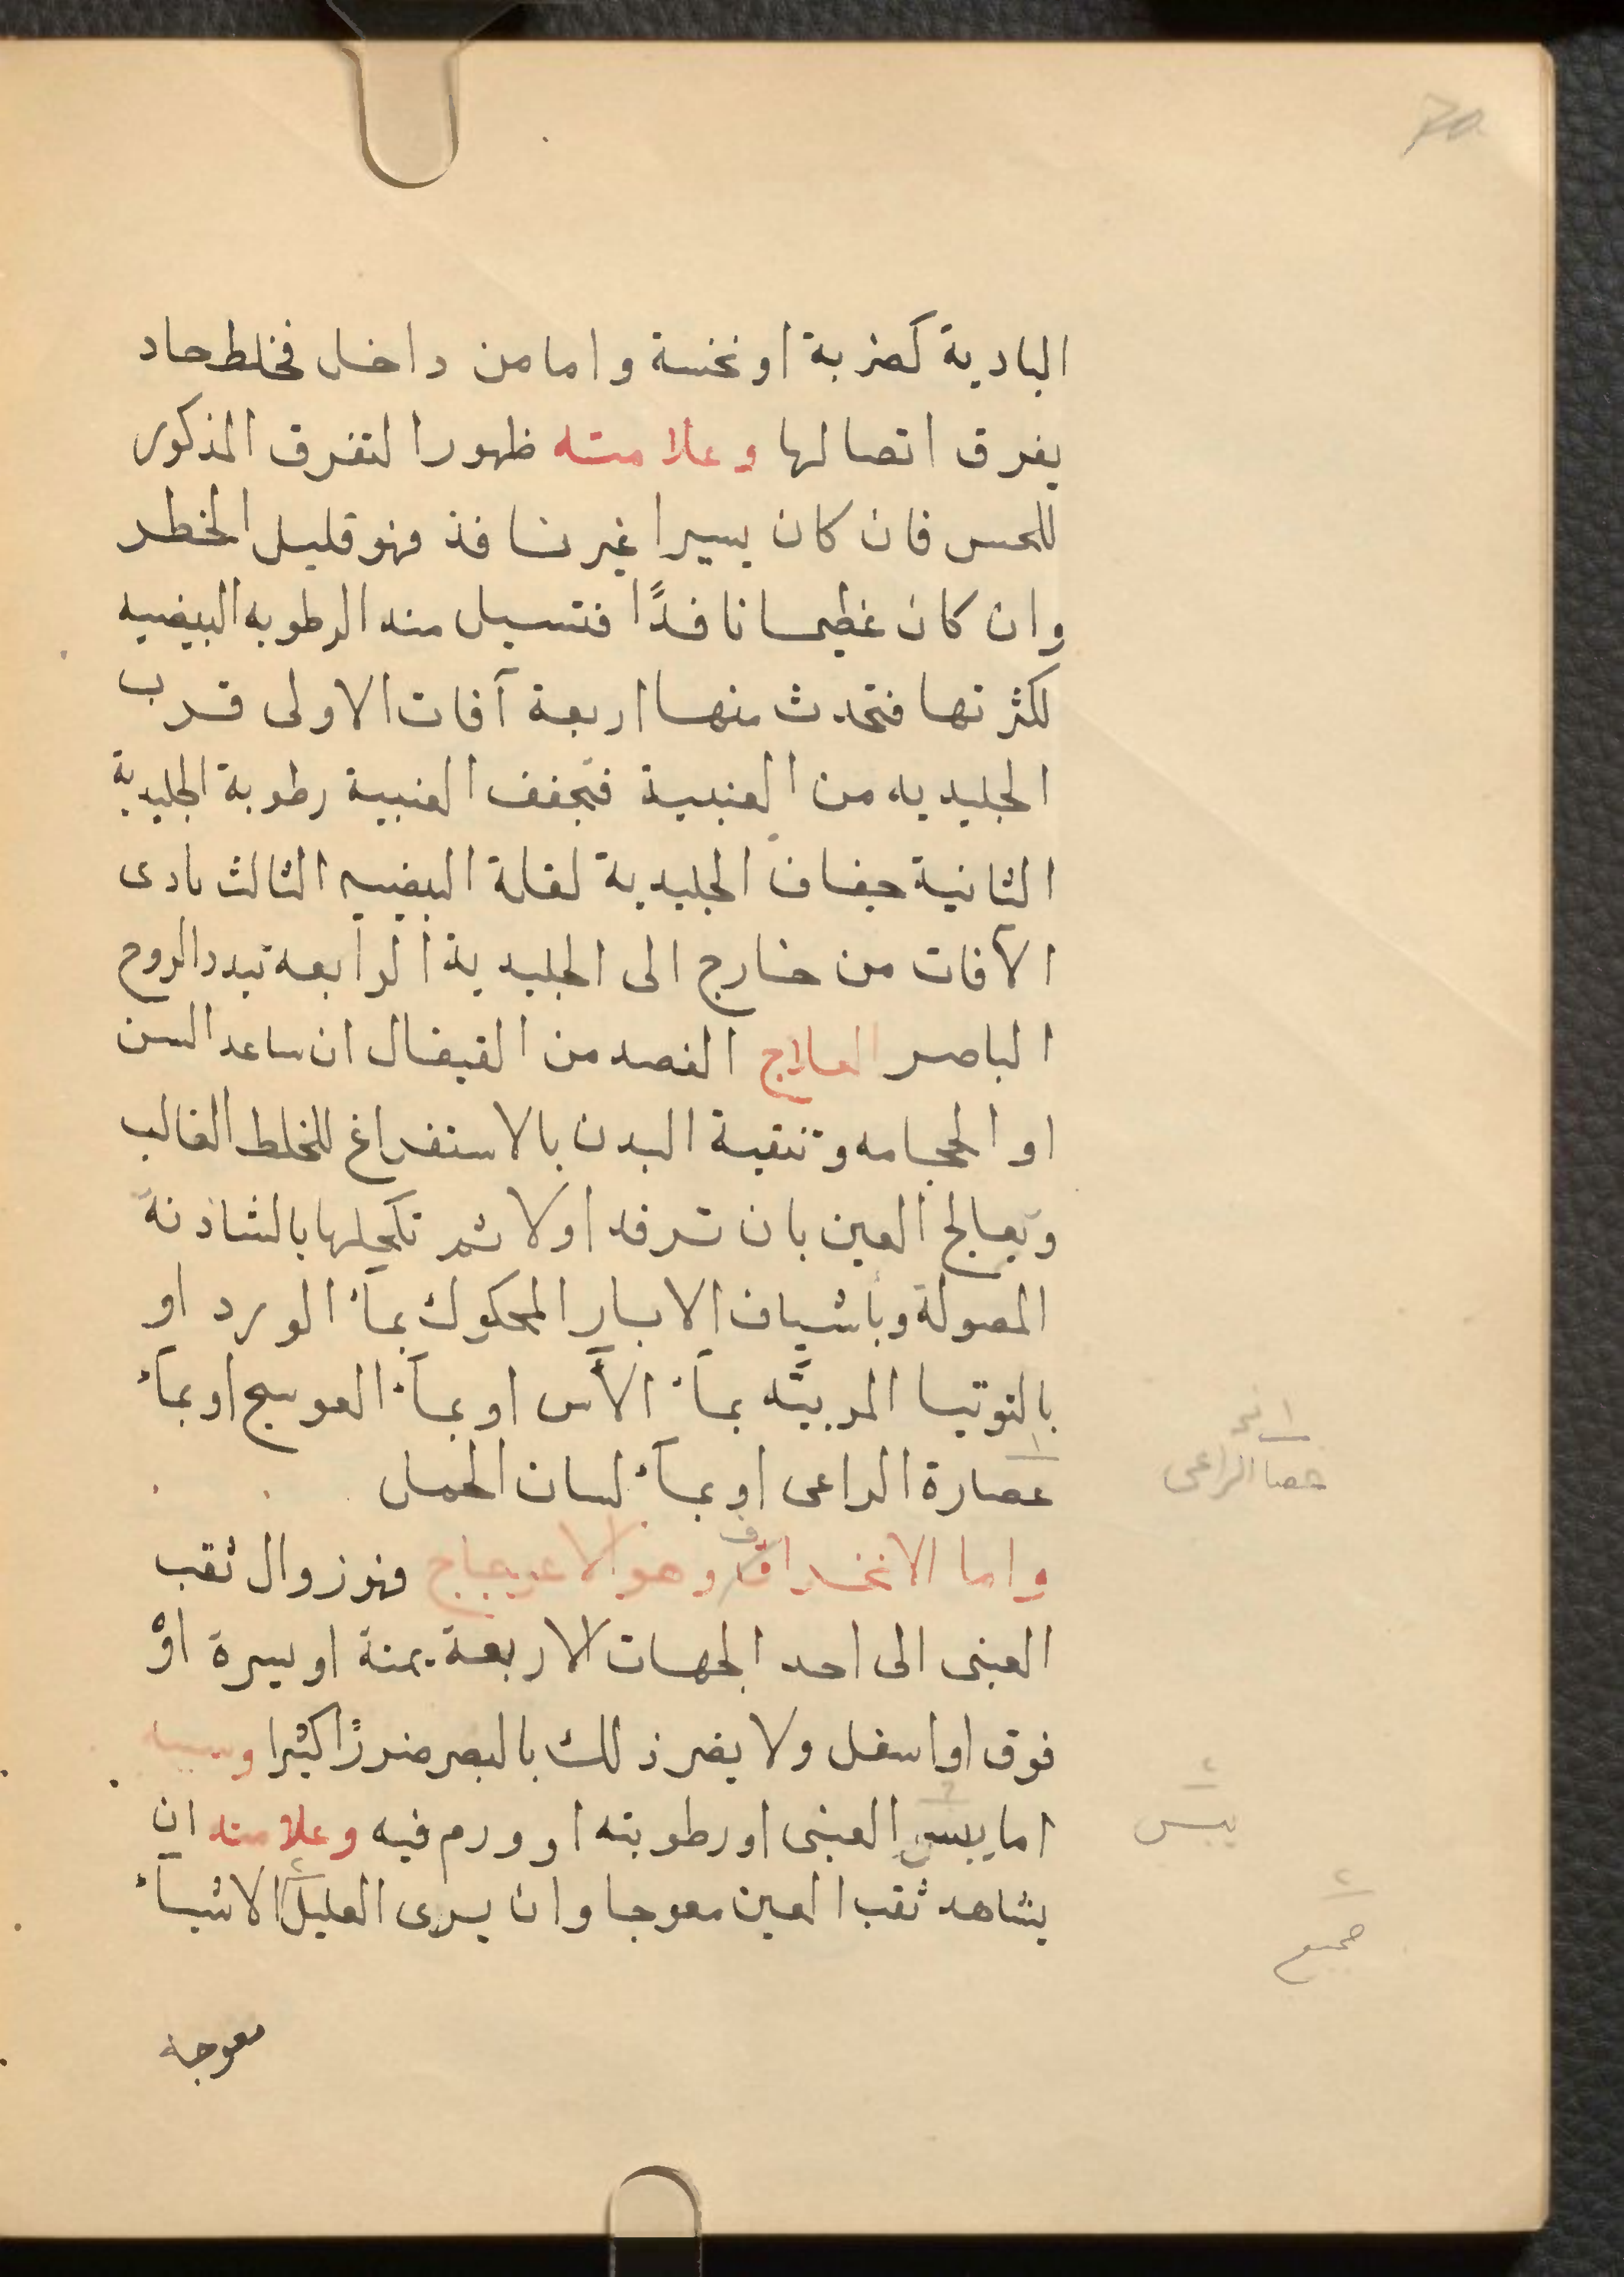 البادية كضربة او نخسة واما من داخل فخلط حاد
يفرق اتصالها وعلامته ظهور التفرق المذكور
للحس فان كان يسيرا غير نافذ فهو قليل الخطر
وان كان عظيما نافدًا فتسيل منه الرطوبه البيضيه
لكثرتها فتحدث منها اربعة آفات الاولى قرب
الجليديه من العنبية فتجفف العنبية رطوبة الجليدية
الثانية جفاف الجليدية لقلة البيضيه الثالث تادى
الآفات من خارج الى الجليدية الرابعه تبدد الروح
الباصر العلاج الفصد من القيفال ان ساعد السن
او الحجامه وتنقية البدن بالاستفراغ للخلط الغالب
وتعالج العين بان ترفد اولا ثم تكحلها بالشاذنة
المصولة وبأشياف الابار المحكوك بمآء الورد او
بالتوتيا المربيّه بمآء الآس او بمآء العوسج او بمآء
عصارة الراعى او بمآء لسان الحمل
١ نخ
عصا الراعى
واما الانخراق وهو الاعوجاج فهو زوال ثقب
ف
العنبى الى احد الجهات الاربعة يمنة او يسرة اوْ
فوق او اسفل ولا يضر ذلك بالبصر ضررًا كثيرا وسببه
اما يبس العنبى او رطوبته او ورم فيه وعلامته ان
يبس
يشاهد ثقب العين معوجا وان يرى العليل الاشيآء
٢
جميع
معوجة